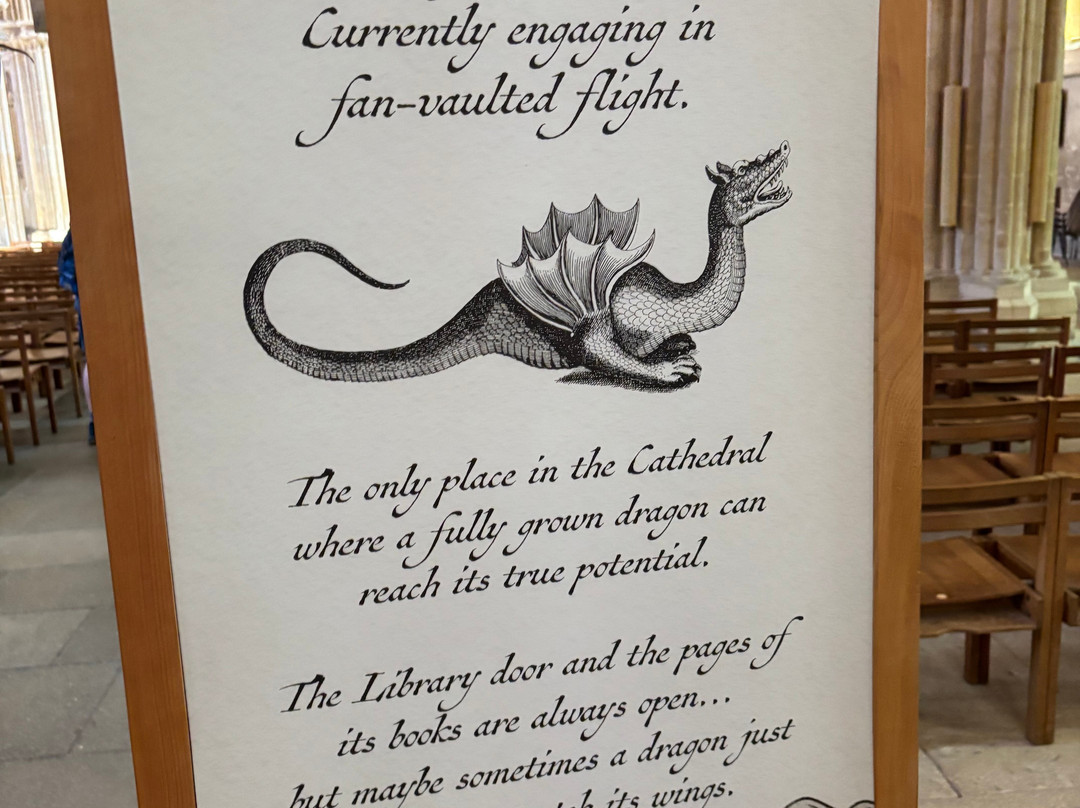 Currently engaging in
fan-vaulted flight.
The only place in the Cathedral
where a fully grown dragon can
reach its true potential.
The Library door and the pages of
its books are always open...
but maybe sometimes a dragon just
its wings.